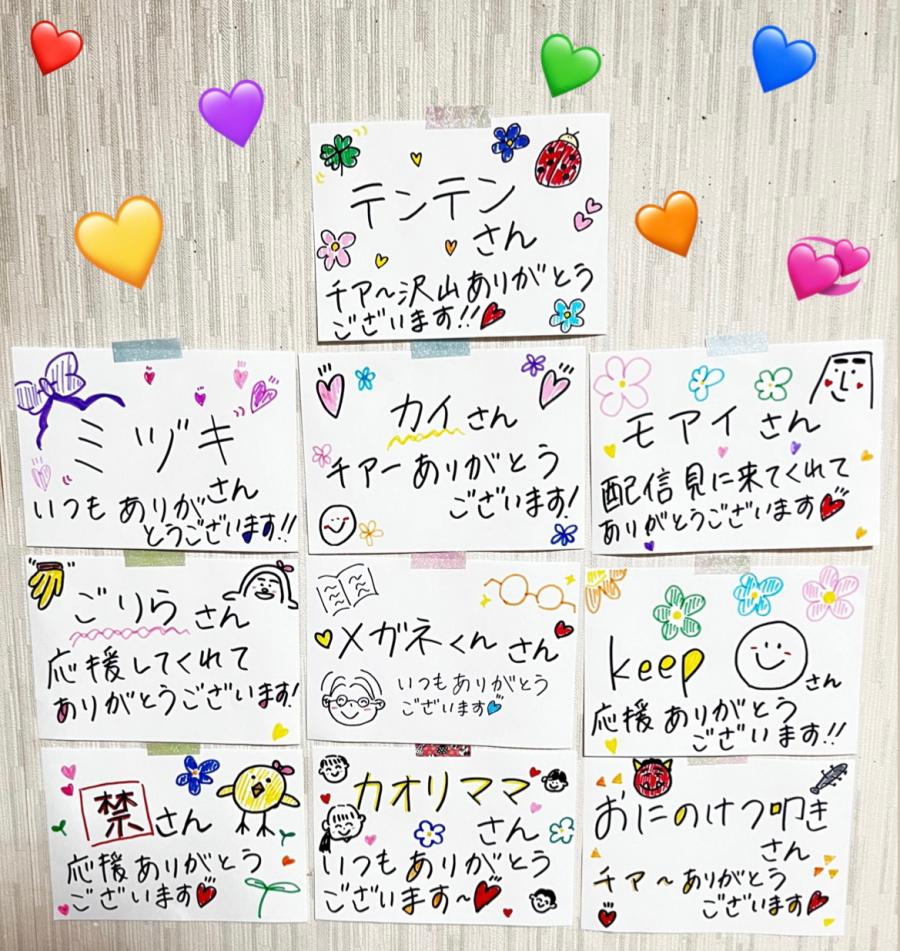 テンテン
さん
チア〜沢山ありがとう
ございます!!
ミヅキ
さん
いつもありが
とうございます!!
カイさん
チアーありがとう
ございます!
モアイさん
配信見に来てくれて
ありがとうございます
ごりらさん
応援してくれて
ありがとうございます!
メガネくんさん
いつもありがとう
ございます
keep
さん
応援ありがとう
ございます!!
禁さん
応援ありがとう
ございます
カオリママ
さん
いつもありがとう
ございます〜
おにのけつ叩き
さん
チア〜ありがとう
ございます